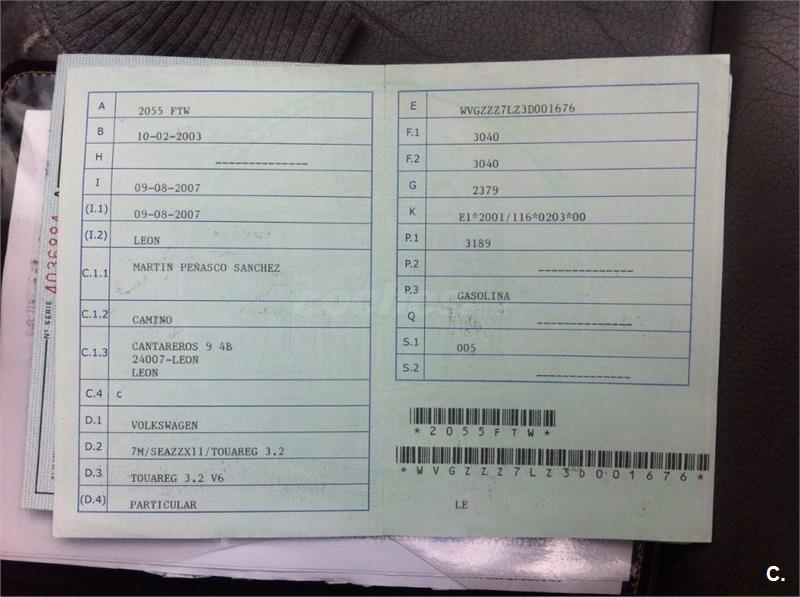 A 2055 FTW
B 10-02-2003
H --------------
I 09-08-2007
(I.1) 09-08-2007
(I.2) LEON
C.1.1 MARTIN PEÑASCO SANCHEZ
C.1.2 CAMINO
C.1.3 CANTAREROS 9 4B
24007-LEON
LEON
C.4 c
D.1 VOLKSWAGEN
D.2 7M/SEAZZX11/TOUAREG 3.2
D.3 TOUAREG 3.2 V6
(D.4) PARTICULAR
Nº SERIE
E WVGZZZ7LZ3D001676
F.1 3040
F.2 3040
G 2379
K E1*2001/116*0203*00
P.1 3189
P.2 --------------
P.3 GASOLINA
Q --------------
S.1 005
S.2 --------------
*2055FTW*
*WVGZZZ7LZ3D001676*
LE
coches
C.